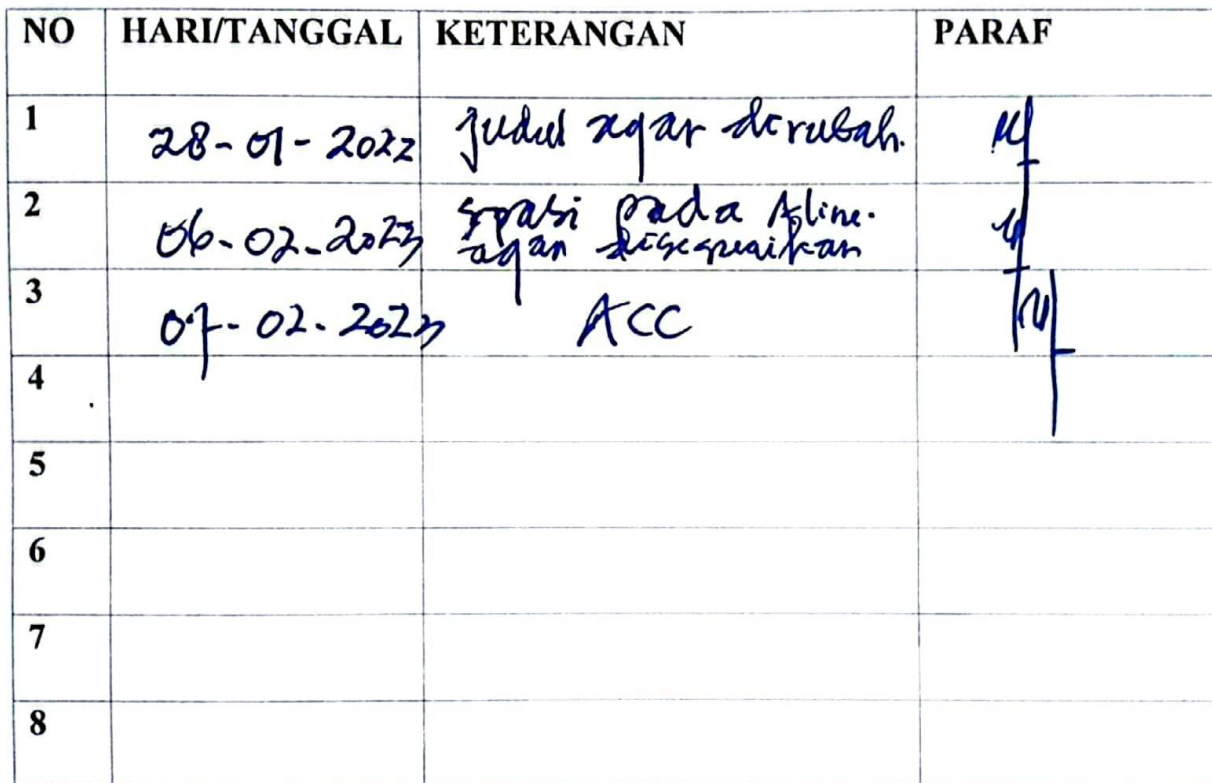 NO HARI/TANGGAL KETERANGAN PARAF
1 28-01-2022 Judul agar dirubah.
2 06-02-2023 Spasi pada Aline.
agar disesuaikan
3 07-02-2023 ACC
4
5
6
7
8